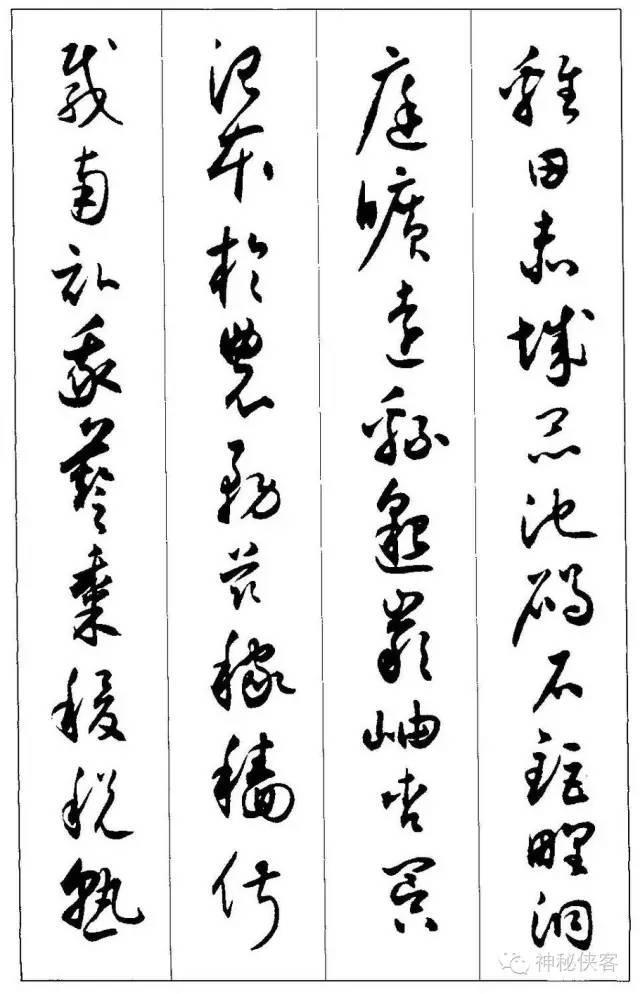 雞田赤城昆池碣石鉅野洞
庭曠遠綿邈巖岫杳冥
治本於農務茲稼穡俶
載南畝我藝黍稷稅熟
神秘侠客